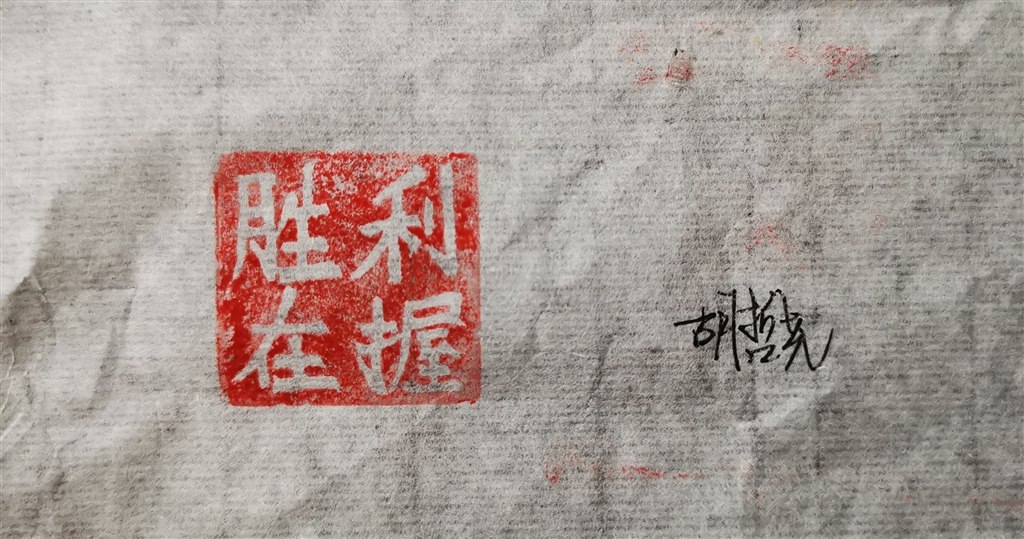 胜利
在握
胡哲尧